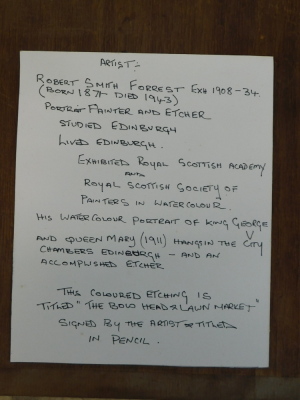 ARTIST:-
ROBERT SMITH FORREST EXH 1908-34.
(BORN 1871 DIED 1943)
PORTRAIT PAINTER AND ETCHER
STUDIED EDINBURGH
LIVED EDINBURGH.
EXHIBITED ROYAL SCOTTISH ACADEMY
AND
ROYAL SCOTTISH SOCIETY OF
PAINTERS IN WATERCOLOUR.
HIS WATERCOLOUR PORTRAIT OF KING GEORGE V
AND QUEEN MARY (1911) HANGS IN THE CITY
CHAMBERS EDINBURGH - AND AN
ACCOMPLISHED ETCHER
THIS COLOURED ETCHING IS
TITLED "THE BOLO HEAD & LAWN MARKET"
SIGNED BY THE ARTIST & TITLED
IN PENCIL.